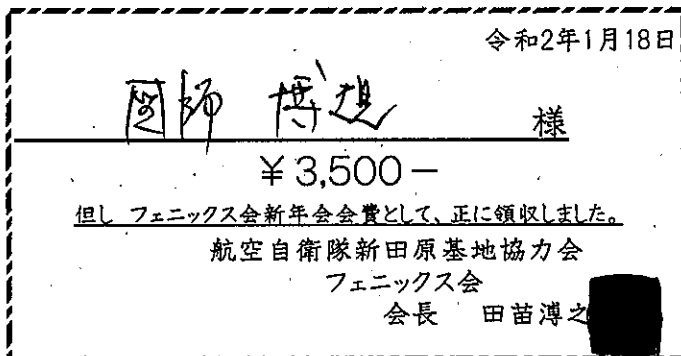 令和2年1月18日
図師 博規 様
¥3,500-
但し フェニックス会新年会会費として、正に領収しました。
航空自衛隊新田原基地協力会
フェニックス会
会長 田苗溥之